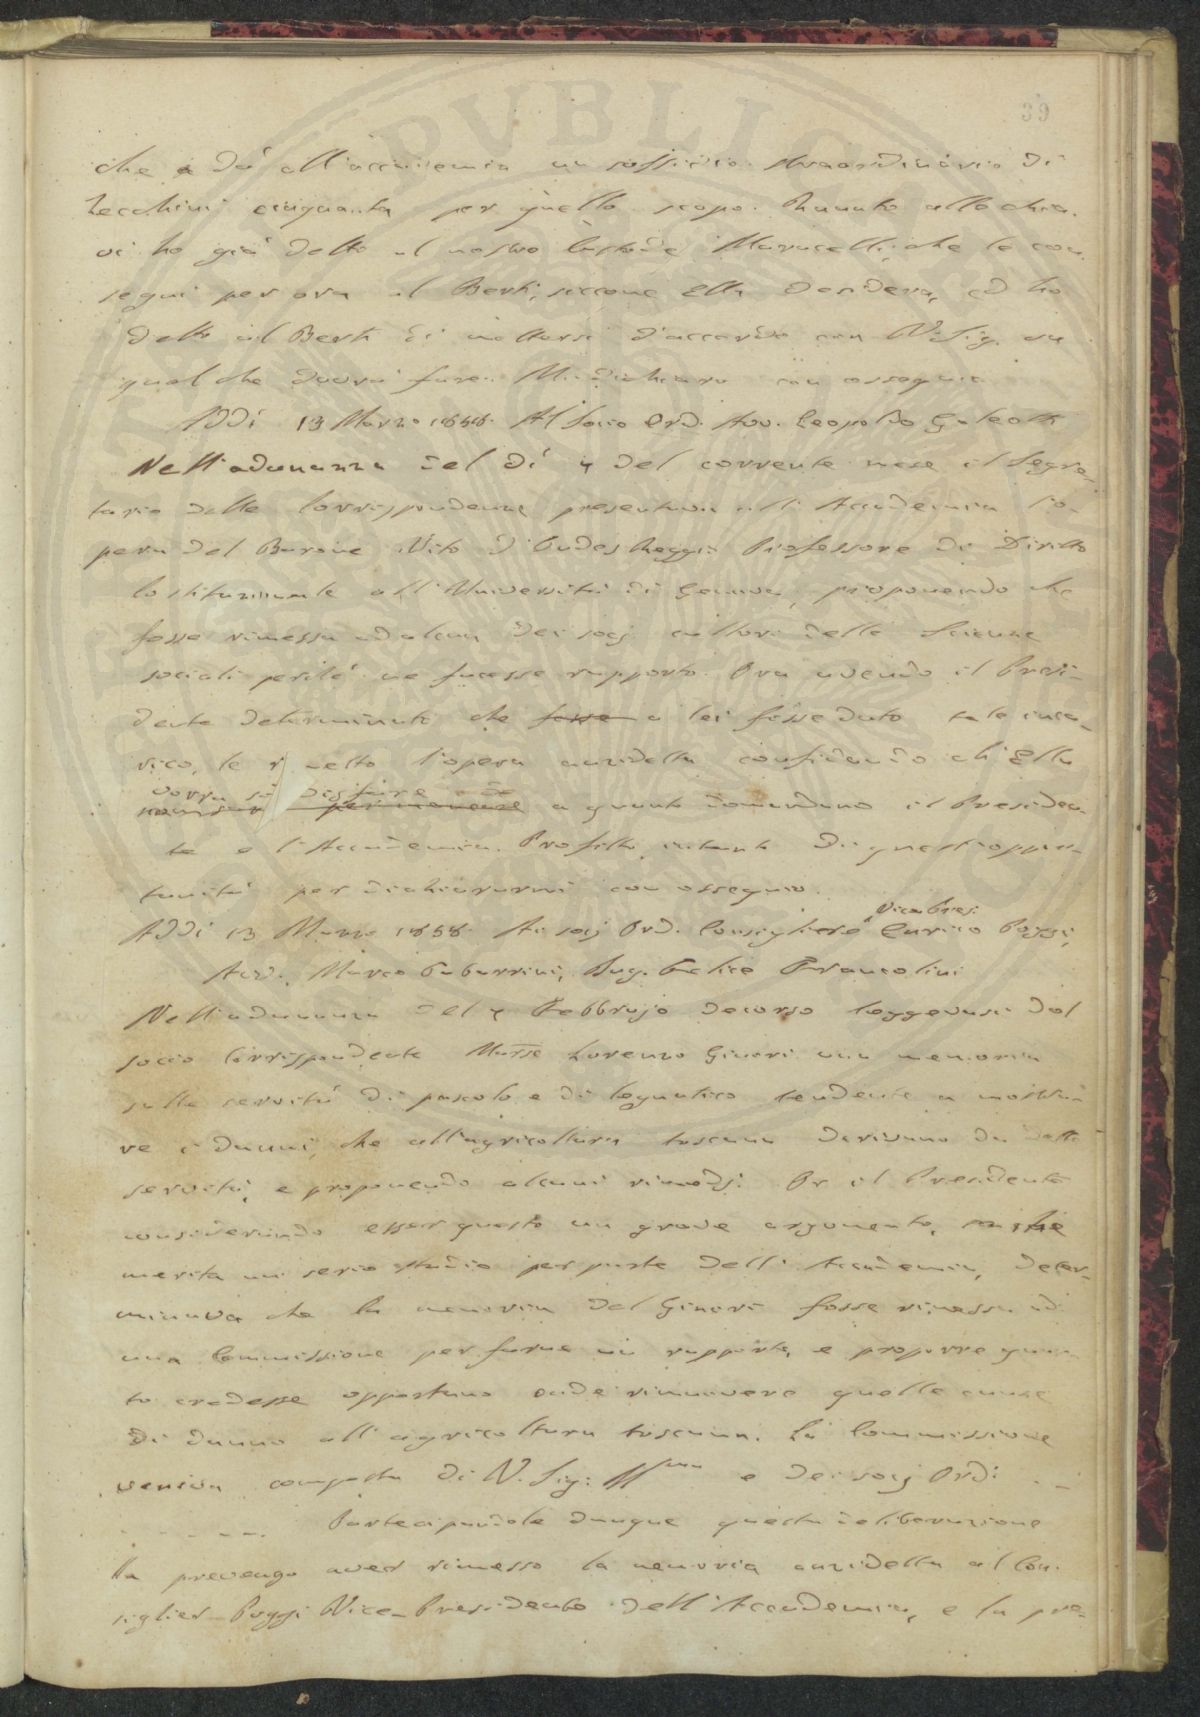 39
che dà all'accademia un sussidio straordinario di
zecchini cinquanta per quello scopo. Quanto alla chia-
vi ho già detto al nostro Custode Marucelli, che le con-
segni per ora al Berti, siccome Ella desidera, ed ho
detto al Berti di mettersi d'accordo con V. Sig. su
quel che dovrà fare. Mi dichiaro con ossequio
Addì 13 Marzo 1858. Al Socio Ord. Avv. Leopoldo Galeotti
Nell'adunanza del dì 7 del corrente mese il Segre-
tario delle Corrispondenze presentava all'Accademia l'o-
pera del Barone Vito d'Ondes Reggio Professore di Diritto
Costituzionale all'Università di Genova, proponendo che
fosse rimessa ad alcun dei socj cultori delle Scienze
sociali perchè ne facesse rapporto. Ora avendo il Presi-
dente determinato che fosse a lei fosse dato tale inca-
rico, le rimetto l'opera anzidetta confidando ch'Ella
vorrà sodisfare
a quanto domandano il Presiden-
te e l'Accademia. Profitto intanto di quest'oppor-
tunità per dichiararmi con ossequio.
Vice Presi
Addì 13 Marzo 1858. Ai socj Ord. Consigliere Enrico Poggi,
Avv. Marco Tabarrini, Ing. Felice Francolini
Nell'adunanza del 7 Febbrajo decorso leggevasi dal
socio Corrispondente Marse Lorenzo Ginori una memoria
sulla servitù di pascolo e di legnatico tendente a mostra-
re i danni, che all'agricoltura toscana derivano da dette
servitù, e proponendo alcuni rimedj. Or il Presidente
considerando esser questo un grave argomento, che
merita un serio studio per parte dell'Accademia, deter-
minava che la memoria del Ginori fosse rimessa ad
una Commissione per farne un rapporto, e proporre quan-
to credesse opportuno onde rimuovere quelle cause
di danno all'agricoltura toscana. La Commissione
veniva composta di V. Sig: Illma e dei socj Ordi
Partecipandole dunque questa deliberazione
la prevengo aver rimesso la memoria anzidetta al Con-
siglier Poggi Vice-Presidente dell'Accademia, e la pre-